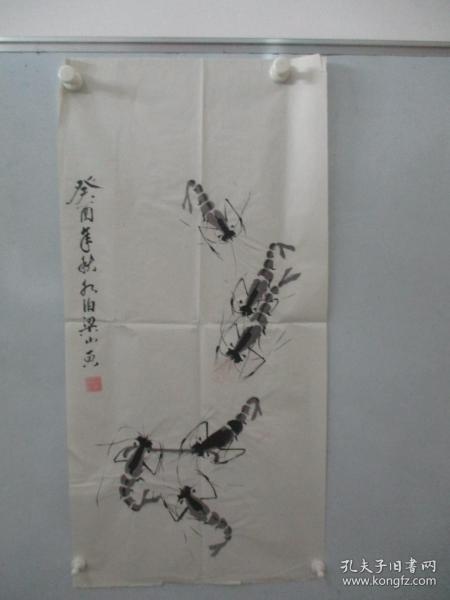 癸酉年秋水泊梁山寅
孔夫子旧书网
www.kongfz.com